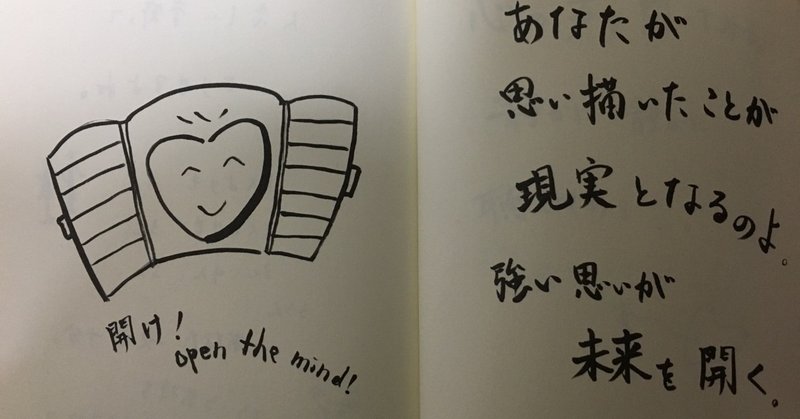 開け!
open the mind!
あなたが
思い描いたことが
現実となるのよ。
強い思いが
未来を開く。